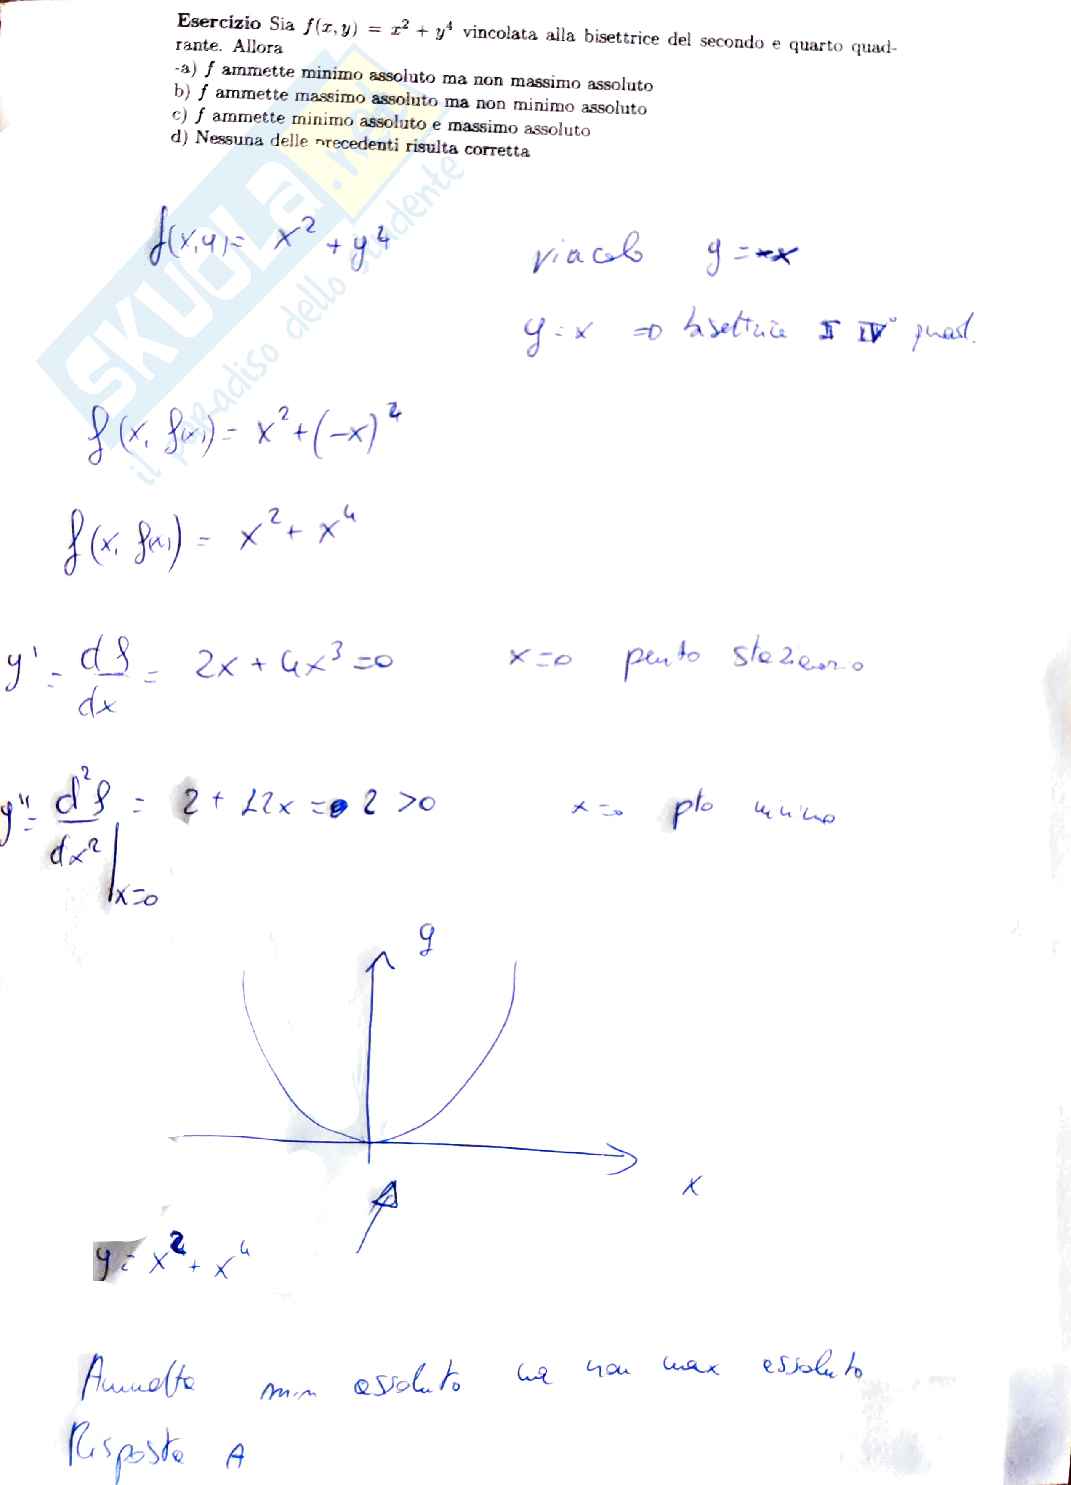 Esercizio Sia f(x, y) = x² + y⁴ vincolata alla bisettrice del secondo e quarto quad-
rante. Allora
-a) f ammette minimo assoluto ma non massimo assoluto
b) f ammette massimo assoluto ma non minimo assoluto
c) f ammette minimo assoluto e massimo assoluto
d) Nessuna delle precedenti risulta corretta
SKUOLA.net
il paradiso dello studente
f(x,y) = x² + y⁴ vincolo y = -x
y = x => bisettrice II IV° quad.
f(x, f(x)) = x² + (-x)⁴
f(x, f(x)) = x² + x⁴
y' = df/dx = 2x + 4x³ = 0 x=0 punto stazionario
y'' = d²f/dx² |x=0 = 2 + 12x = 2 > 0 x=0 pto minimo
y
x
y = x² + x⁴
Ammette min assoluto ma non max assoluto
Risposta A